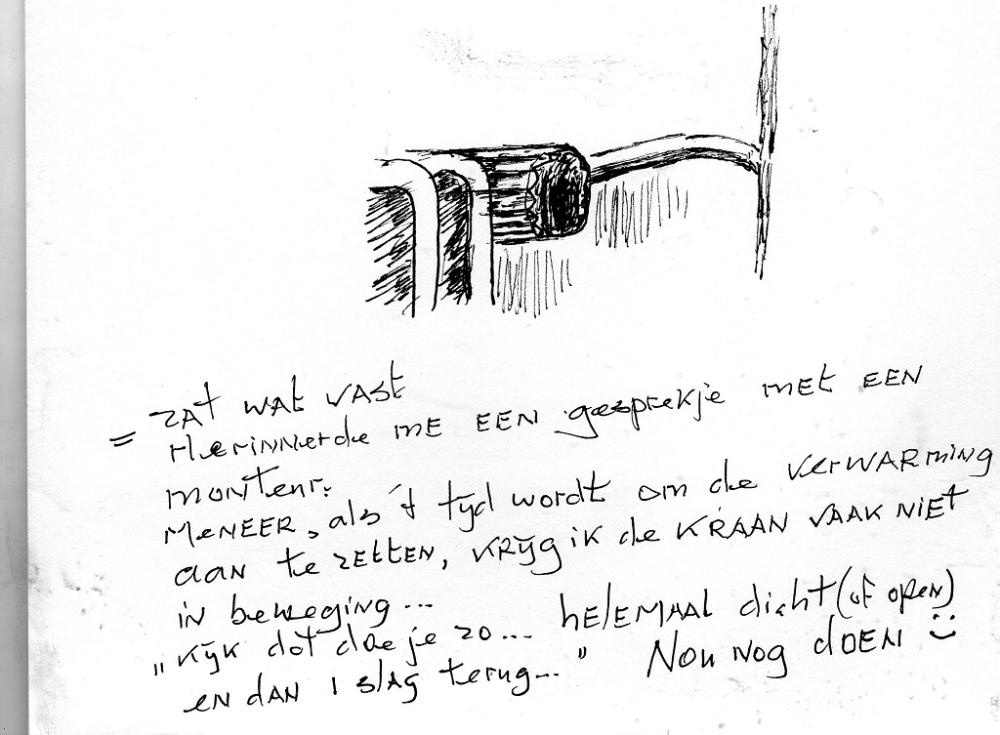 = zat wat vast
Herinnerde me een gesprekje met een
monteur.
Meneer, als 't tijd wordt om de verwarming
aan te zetten, krijg ik de kraan vaak niet
in beweging...
„Kijk dat doe je zo... helemaal dicht (of open)
en dan 1 slag terug..." Nou nog doen :)